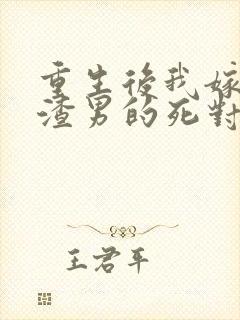 重生後我嫁
渣男的死對
王君平